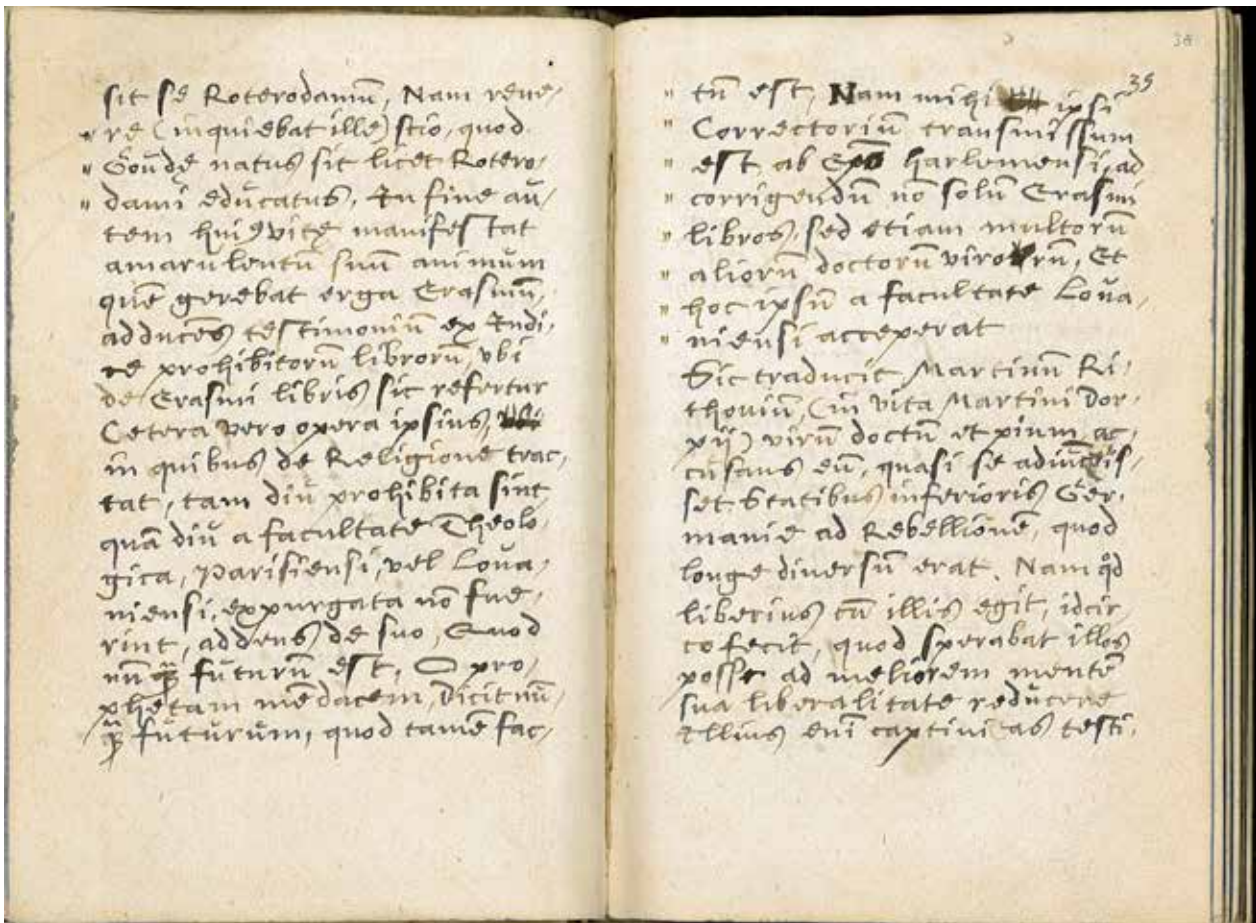 sit se Roterodamū, Nam reue,
" re (inquiebat ille) scio, quod
" Goudę natus sit licet Rotero,
" dami educatus, In fine au,
tem huiꝰ vitę manifestat
amarulentū suū animum
quē gerebat erga Erasmū,
adducēs testimoniū ex Indi,
ce prohibitorū librorū, vbi
de Erasmi libris sic refertur
Cetera vero opera ipsius,
in quibus de Religione trac,
tat, tam diu prohibita sint,
quā diu a facultate Theolo,
gica, Parisiensi, vel Loua,
niensi, expurgata nō fue,
rint, addens de suo, Quod
nūꝙ̄ futurū est, O pro,
phetam mēdacem, Dicit nū,
ꝙ̄ futurum, quod tamē fac,
38
35
" tū est, Nam mihi ipsi
" Correctoriū transmissum
" est ab Epō harlemensi, ad
" corrigendū nō solū Erasmi
" libros, sed etiam multorū
" aliorū doctorū virorū, Et
" hoc ipsū a facultate Loua,
" niensi acceperat
Sic traducit Martinū Ri,
thouiū, (in vita Martini Dor,
pij) virū doctū et pium, ac,
cusans eū, quasi se adiūxis,
set Statibus inferioris Ger,
manie ad Rebellionē, quod
longe diuersū erat. Nam qd
liberius cū illis egit, idcir,
co fecit, quod sperabat illos
posse ad meliorem mentē
sua liberalitate reducere
Illius eni captiuitas testi,